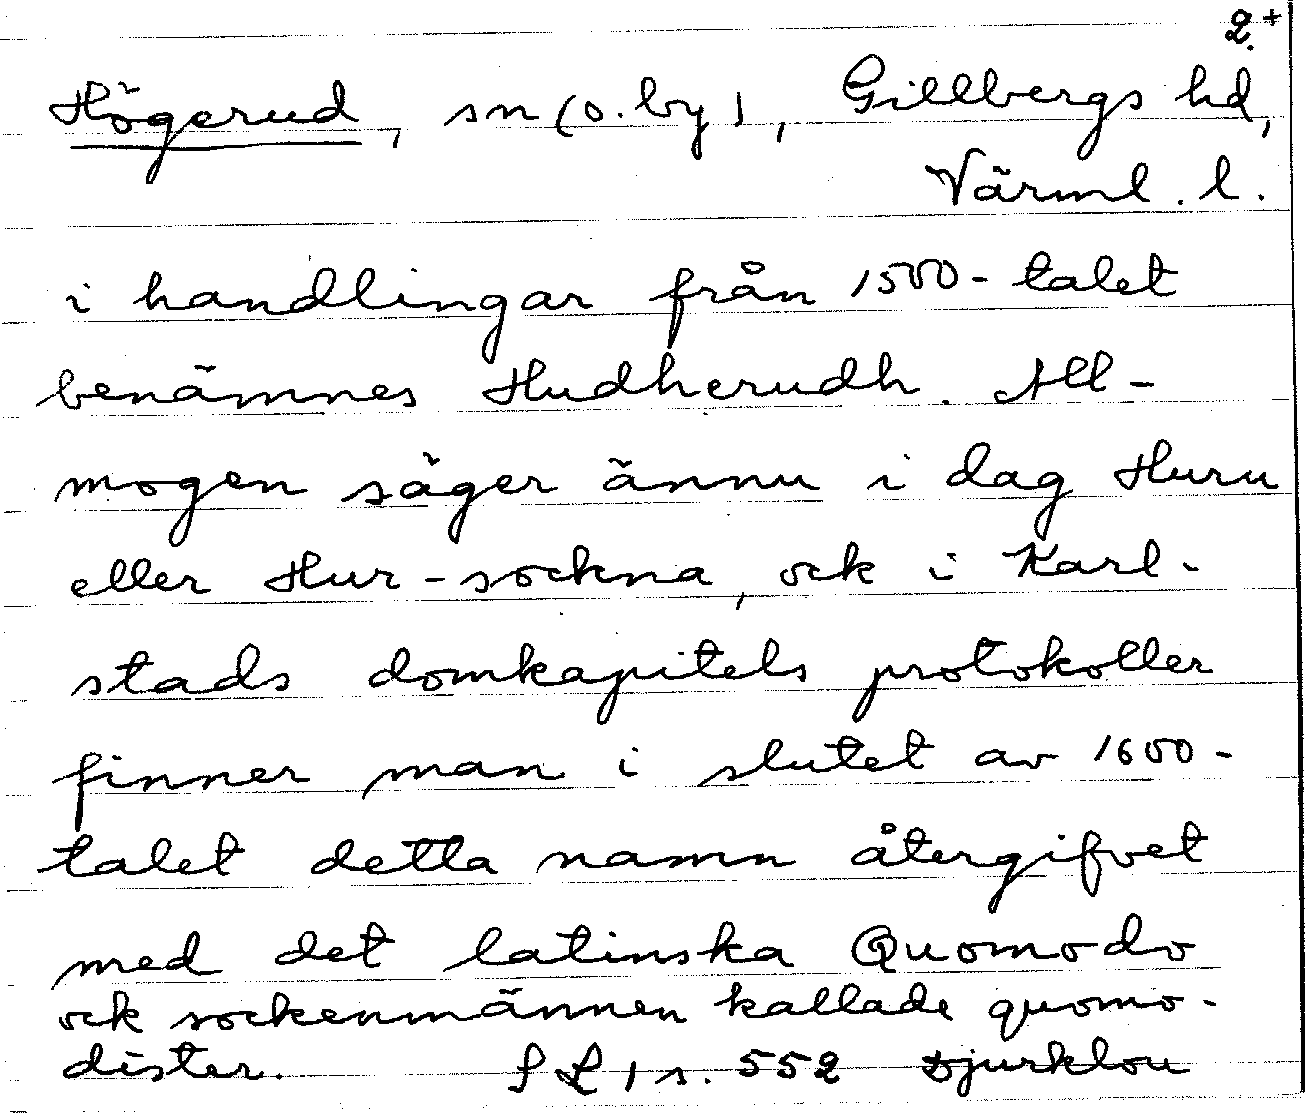 2.+
Högerud, sn (o. by), Gillbergs hd,
Värml. l.
i handlingar från 1500-talet
benämnes Hudherudh. All-
mogen säger ännu i dag Huru
eller Hur-sockna, ock i Karl-
stads domkapitels protokoller
finner man i slutet av 1600-
talet detta namn återgifvet
med det latinska Quomodo
ock sockenmännen kallade quomo-
dister. SL 1 s. 552 Djurklou